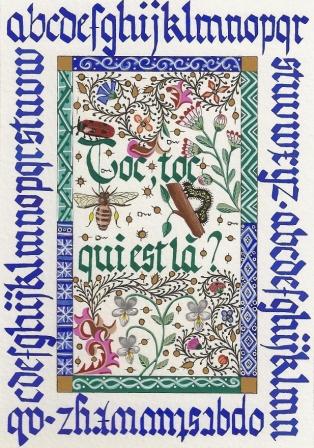 abcdefghijklmnopqr
stuvwxyz·abcdefghijklmn
opqrstuvwxyz·ab
cdefghijklmnopqrstuvw
Toc·toc
qui est là ?